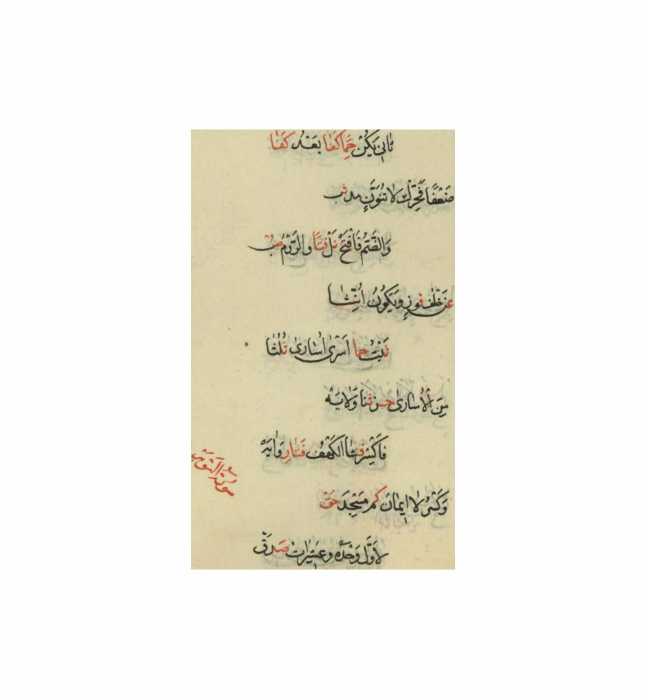 ثاني يكن حما كفا بعد كفا
ضعفا فحرك لا تنون مد ثب
والضم فافتح نل فتى والروم صب
عن خلف فوز ويكون أنثا
ثبت حما أسرى أسارى ثلثا
من الأسارى حز ثنا ولايه
فاكسر فشا الكهف فتى روايه
سورة التوبة
وكسر لا ايمان كم مسجد حق
لاول وحده وعشيرات صدق